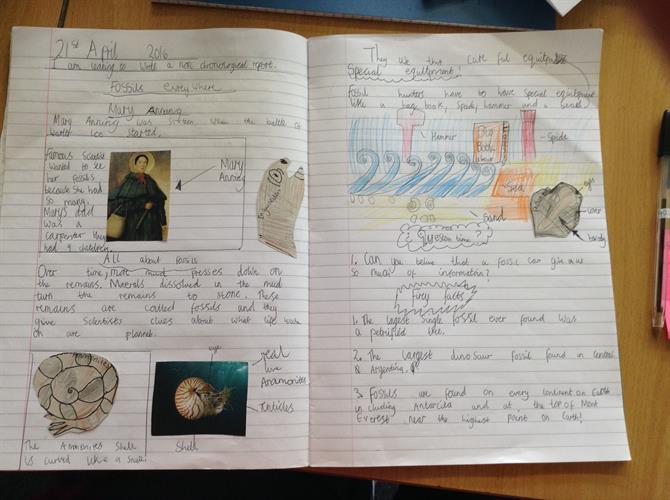 21st April 2016
I am learning to write a non chronological report.
Fossils everywhere
Mary Anning
Mary Anning was sixteen when the battle of
water loo started.
Famous Scientist
wanted to see
her fossils
because she had
so many.
Marys dad
was a
carpenter they
had 9 children.
Mary
Anning
All about fossils
Over time, more mud presses down on
the remains. Minerals dissolved in the mud
turn the remains to stone. These
remains are called fossils and they
give Scientists clues about what life was
on are planet.
eye
real
live
Ammonites
Tenticles
Shell
The Ammonites Shell
is curved like a snail.
They use this care ful equipment
Special equipment!
Fossil hunters have to have special equipment
like a bag book, Spade, hammer and a
Hammer
Bug
Book
Spade
Sea
Sand
eyes
body
Question time?
1. Can you belive that a fossil can give us
so much of information?
firey facts
1. The largest single fossil ever found was
a petrified tree.
2. The largest dinosaur fossil found in
& Argentina.
3. Fossils are found on every continent on Earth
including Antarctica and at the top of Mont
Everest near the highest point on Earth!